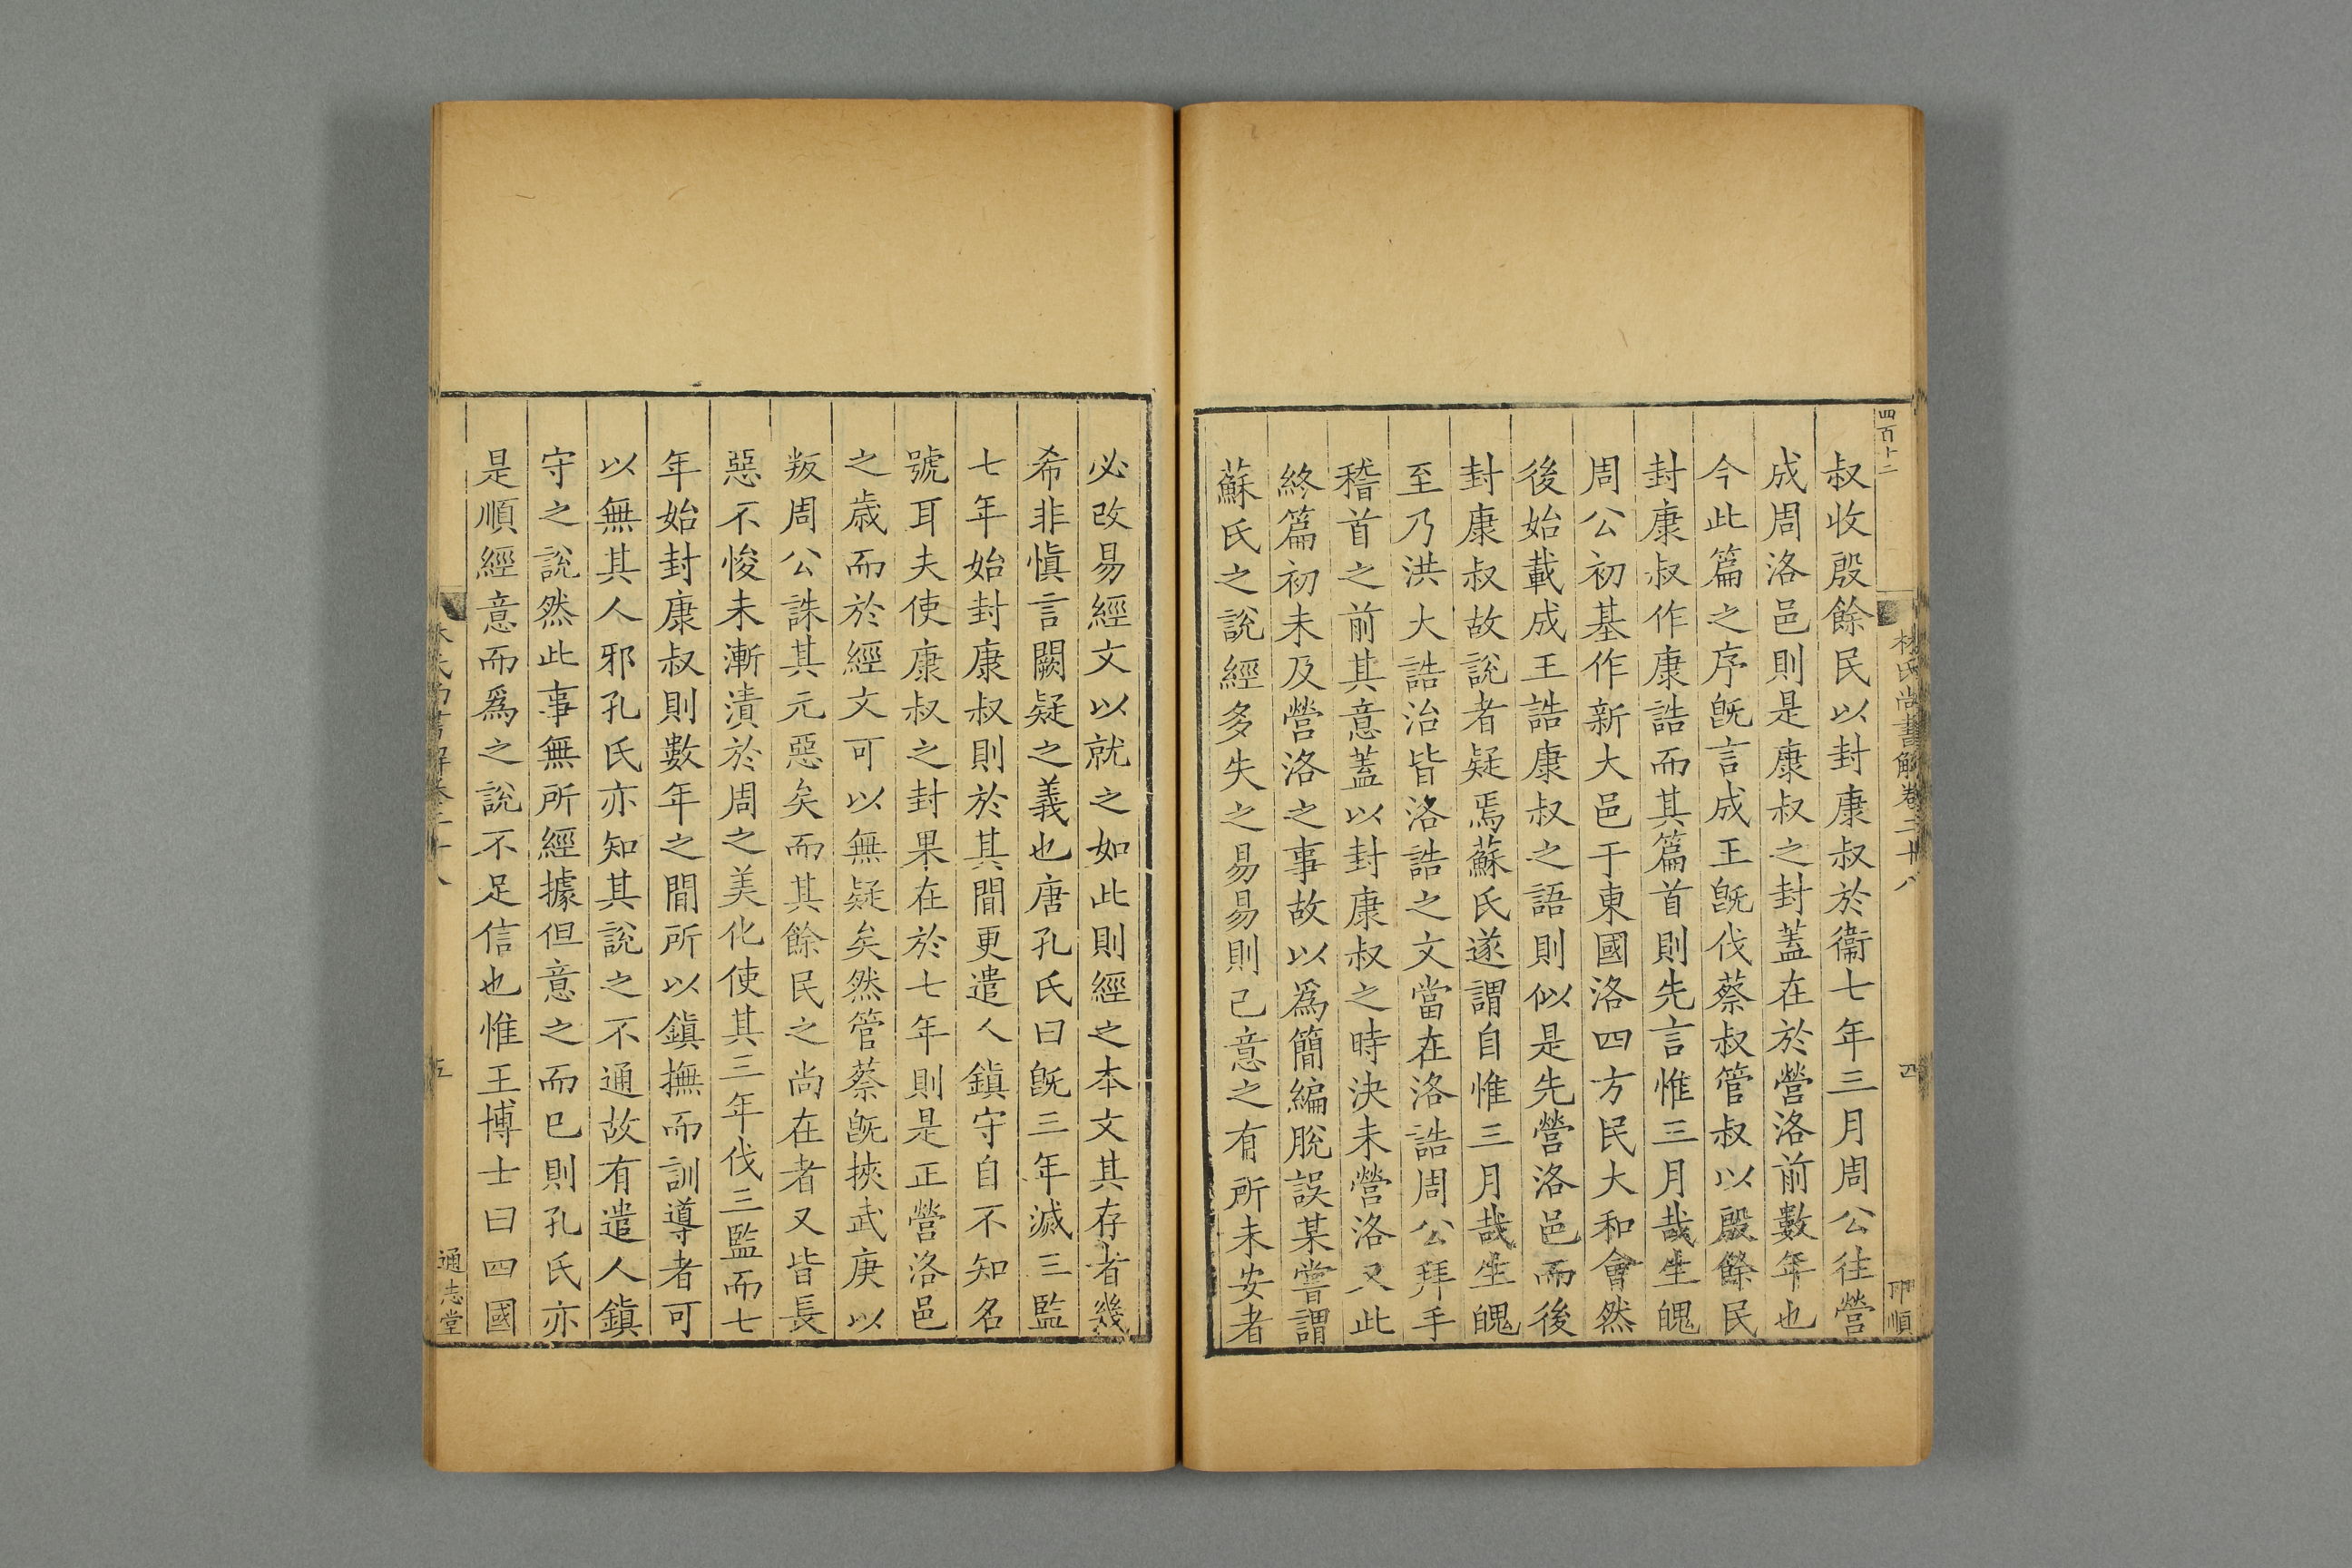 四百十二
林氏尚書解卷二十八
四
印順
叔收殷餘民以封康叔於衞七年三月周公往營
成周洛邑則是康叔之封蓋在於營洛前數年也
今此篇之序旣言成王旣伐蔡叔管叔以殷餘民
封康叔作康誥而其篇首則先言惟三月哉生魄
周公初基作新大邑于東國洛四方民大和會然
後始載成王誥康叔之語則似是先營洛邑而後
封康叔故說者疑焉蘇氏遂謂自惟三月哉生魄
至乃洪大誥治皆洛誥之文當在洛誥周公拜手
稽首之前其意蓋以封康叔之時決未營洛又此
終篇初未及營洛之事故以爲簡編脫誤某嘗謂
蘇氏之說經多失之易易則己意之有所未安者
必改易經文以就之如此則經之本文其存者幾
希非愼言闕疑之義也唐孔氏曰旣三年滅三監
七年始封康叔則於其間更遣人鎭守自不知名
號耳夫使康叔之封果在於七年則是正營洛邑
之歲而於經文可以無疑矣然管蔡旣挾武庚以
叛周公誅其元惡矣而其餘民之尚在者又皆長
惡不悛未漸漬於周之美化使其三年伐三監而七
年始封康叔則數年之間所以鎭撫而訓導者可
以無其人邪孔氏亦知其說之不通故有遣人鎭
守之說然此事無所經據但意之而已則孔氏亦
是順經意而爲之說不足信也惟王博士曰四國
林氏尚書解卷二十八
五
通志堂